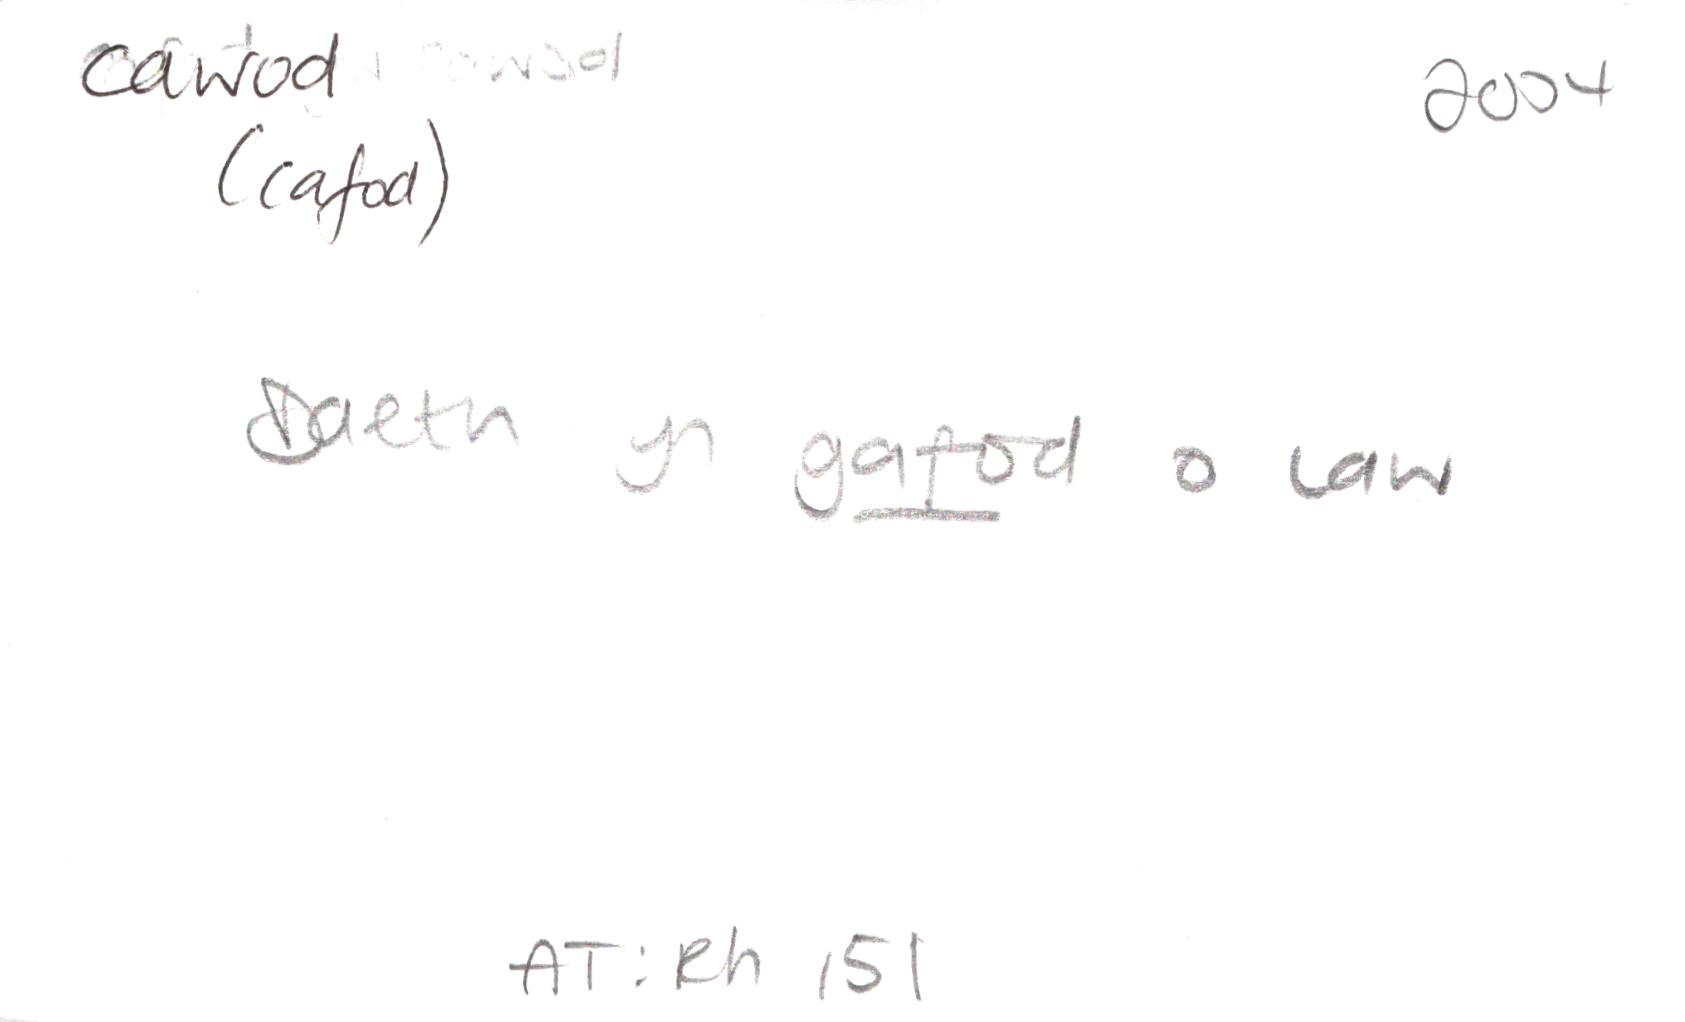 cawod 2004
(cafod)
Daeth yn gafod o law
AT: Rh 151